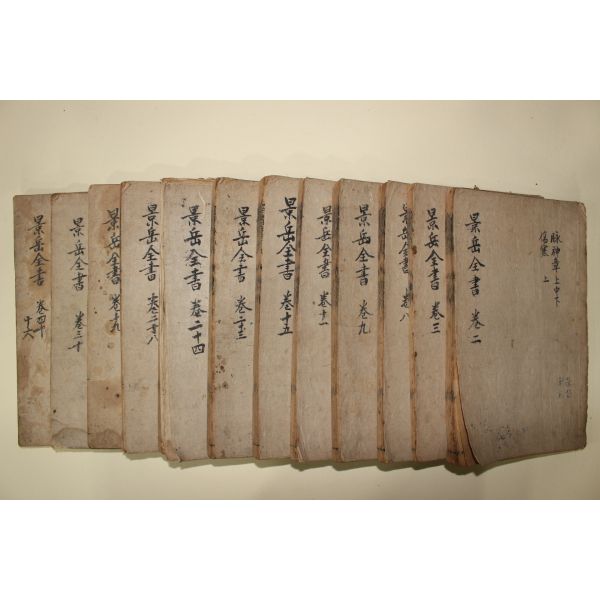 景岳全書 卷二
脉神章 上中下
傷寒 上
景岳全書 卷三
景岳全書 卷八
景岳全書 卷九
景岳全書 卷十一
景岳全書 卷十五
景岳全書 卷二十三
景岳全書 卷二十四
景岳全書 卷二十八
景岳全書 卷十九
景岳全書 卷三十
景岳全書 卷四十
十六